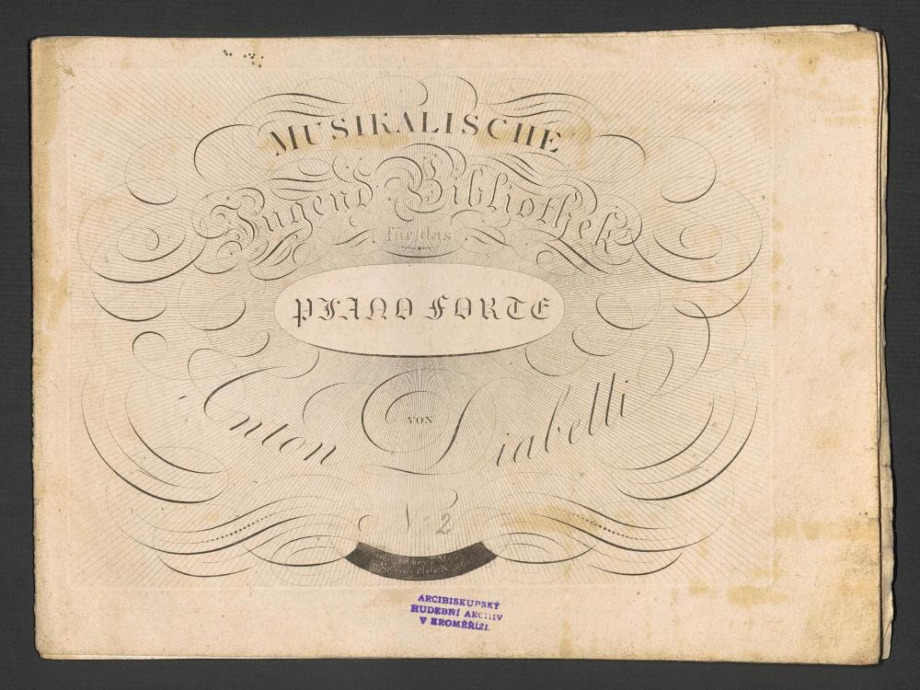 MUSIKALISCHE
Jugend Bibliothek
für das
PIANO FORTE
VON
Anton Diabelli
N 2
ARCIBISKUPSKÝ
HUDEBNÍ ARCHIV
V KROMĚŘÍŽI.